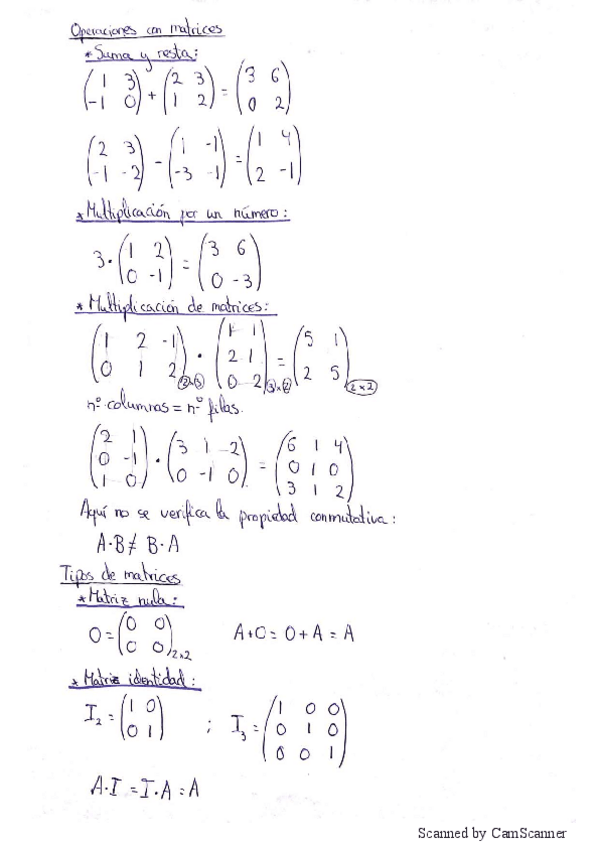 Operaciones con matrices
* Suma y resta:
(1 3; -1 0) + (2 3; 1 2) = (3 6; 0 2)
(2 3; -1 -2) - (1 -1; -3 -1) = (1 4; 2 -1)
* Multiplicación por un número:
3 · (1 2; 0 -1) = (3 6; 0 -3)
* Multiplicación de matrices:
(1 2 -1; 0 1 2) 2x3 · (1 1; 2 1; 0 2) 3x2 = (5 1; 2 5) 2x2
nº columnas = nº filas.
(2 1; 0 -1; 1 0) · (3 1 -2; 0 -1 0) = (6 1 4; 0 1 0; 3 1 2)
Aquí no se verifica la propiedad conmutativa:
A·B ≠ B·A
Tipos de matrices
* Matriz nula:
O = (0 0; 0 0) 2x2 A+O = O+A = A
* Matriz identidad:
I₂ = (1 0; 0 1) ; I₃ = (1 0 0; 0 1 0; 0 0 1)
A·I = I·A = A
Scanned by CamScanner